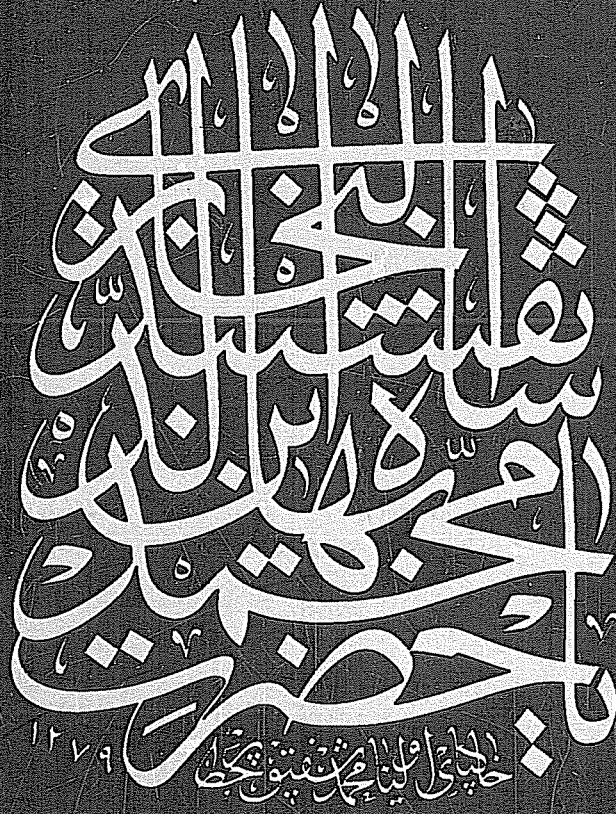 يا حضرت محمد بهاء الدين شاه نقشبند البخاري
خاكپاي اوليا محمد شفيق
١٢٧٩